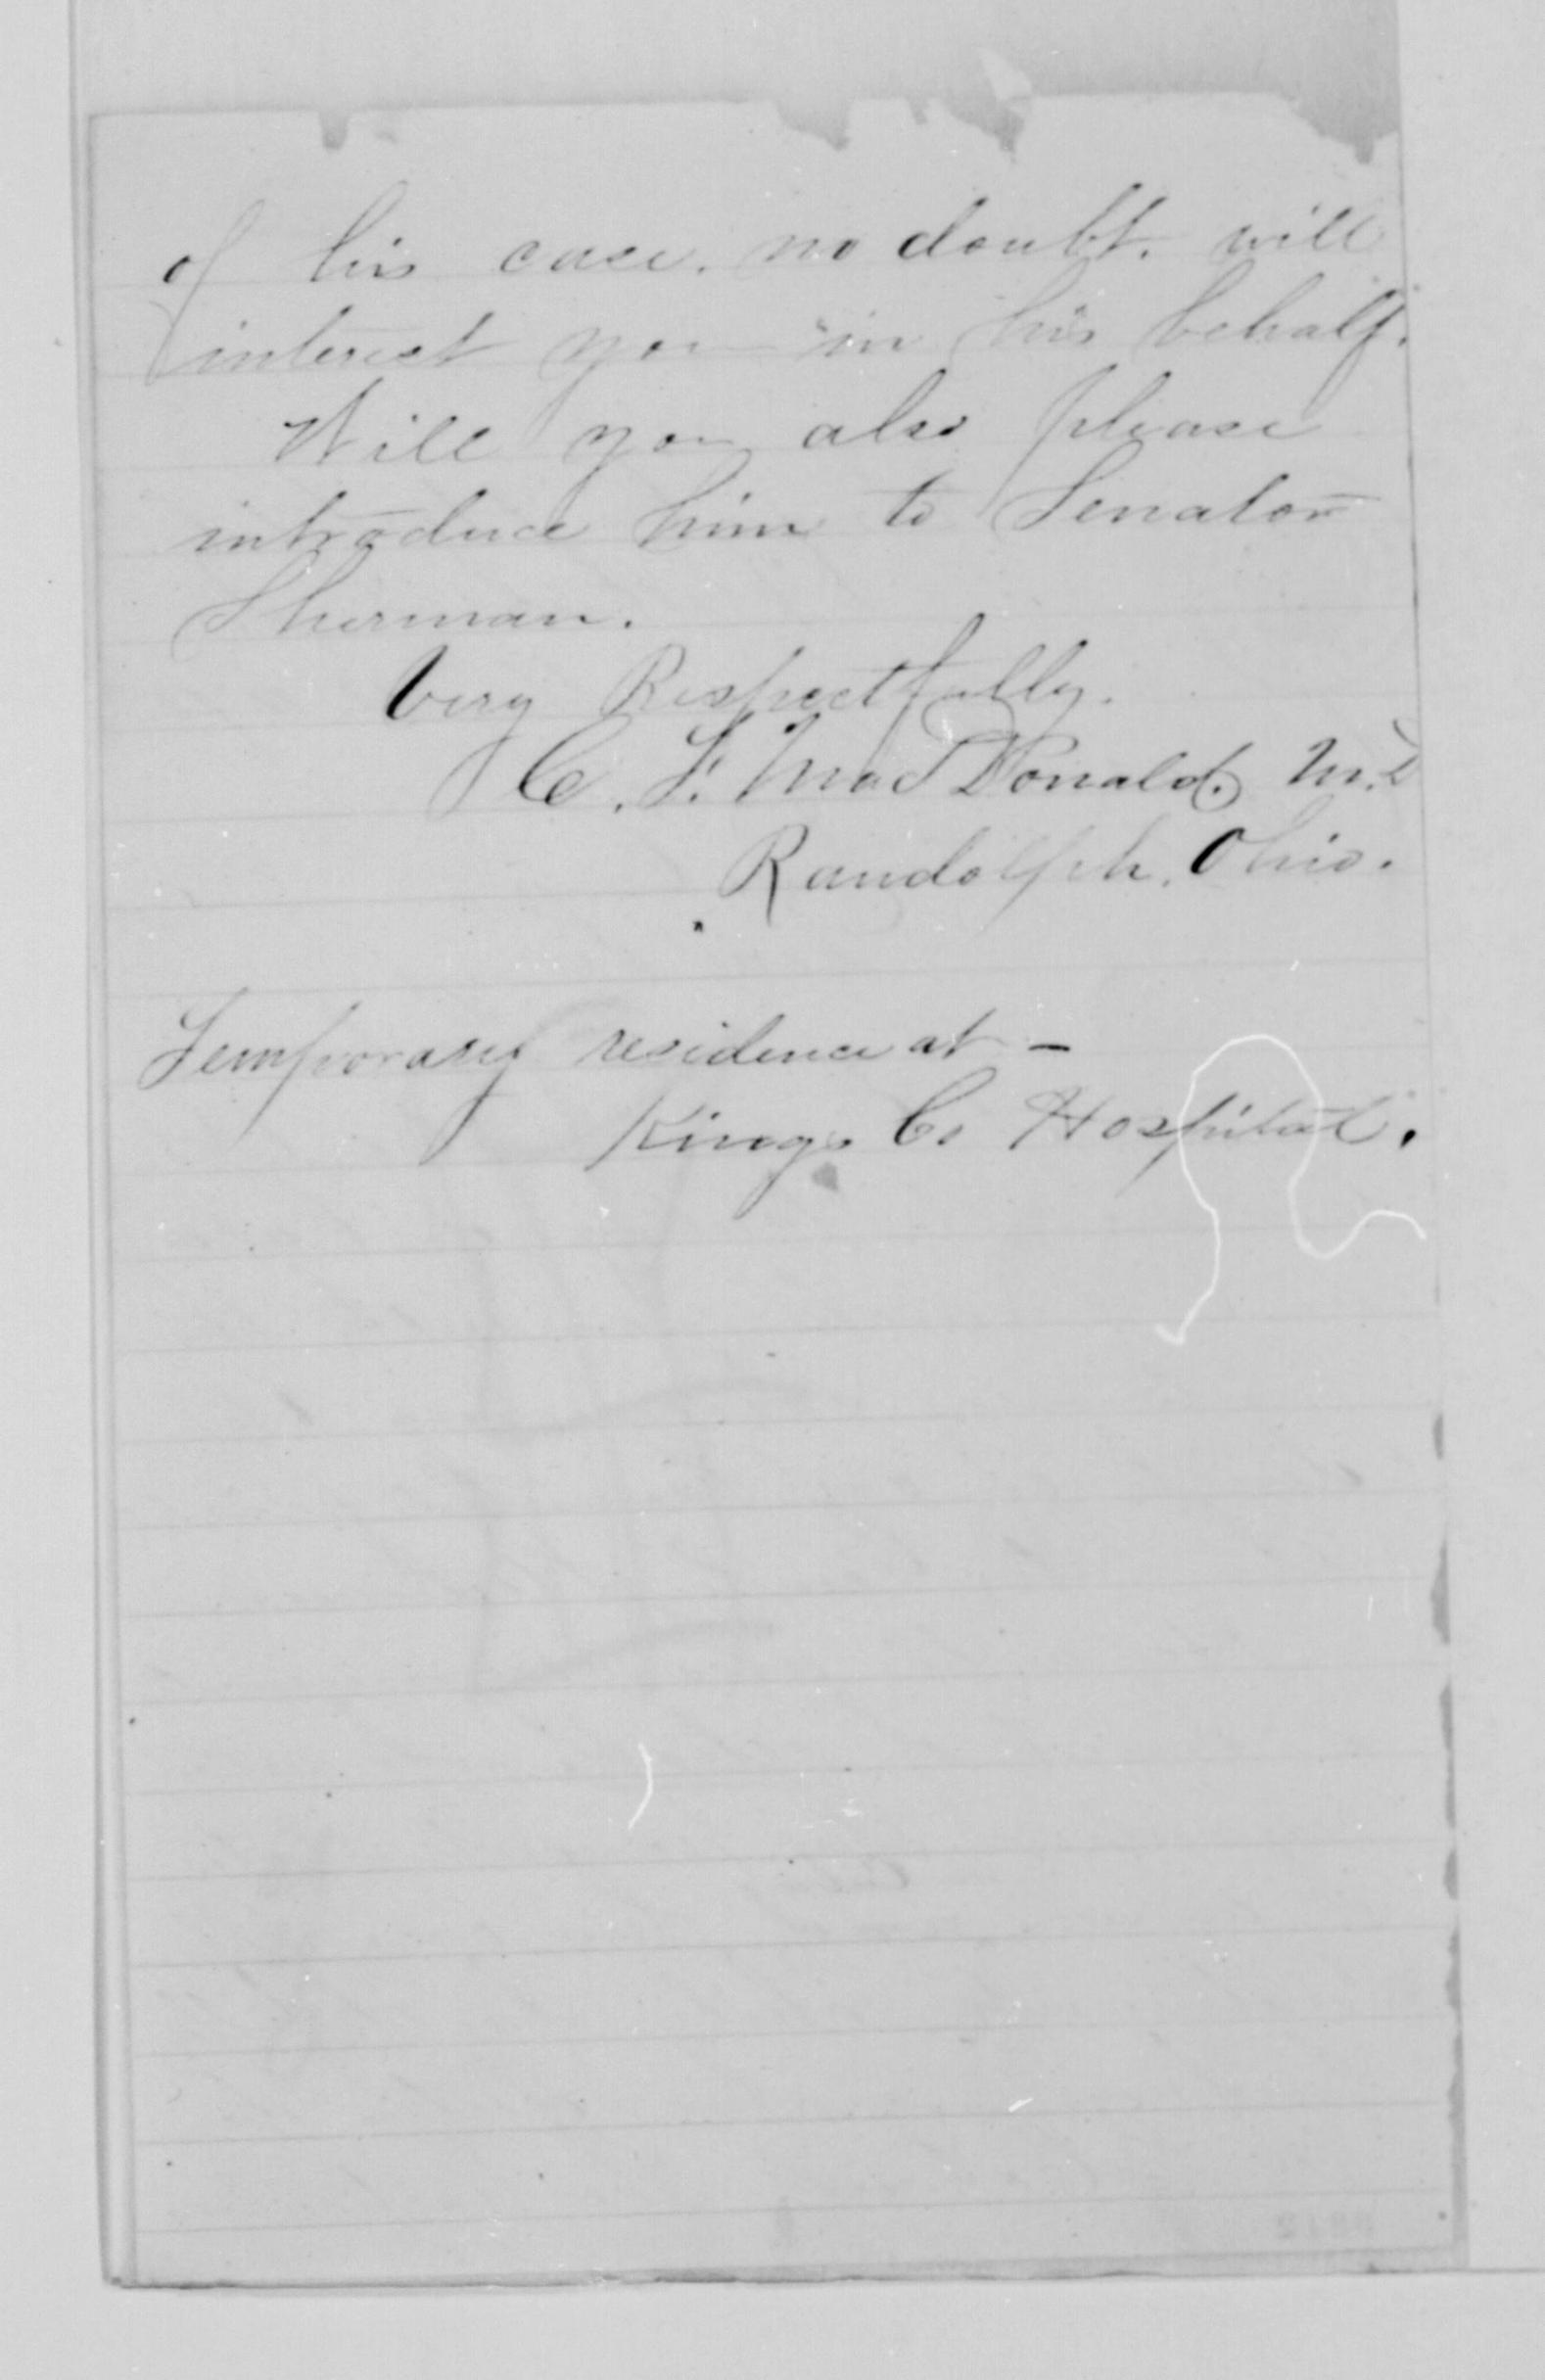 of his case, no doubt, will
interest you in his behalf.
Will you also please
introduce him to Senator
Sherman.
Very Respectfully.
C. F. MacDonald. M.D
Randolph, Ohio.
Temporary residence at –
Kings Co Hospital.